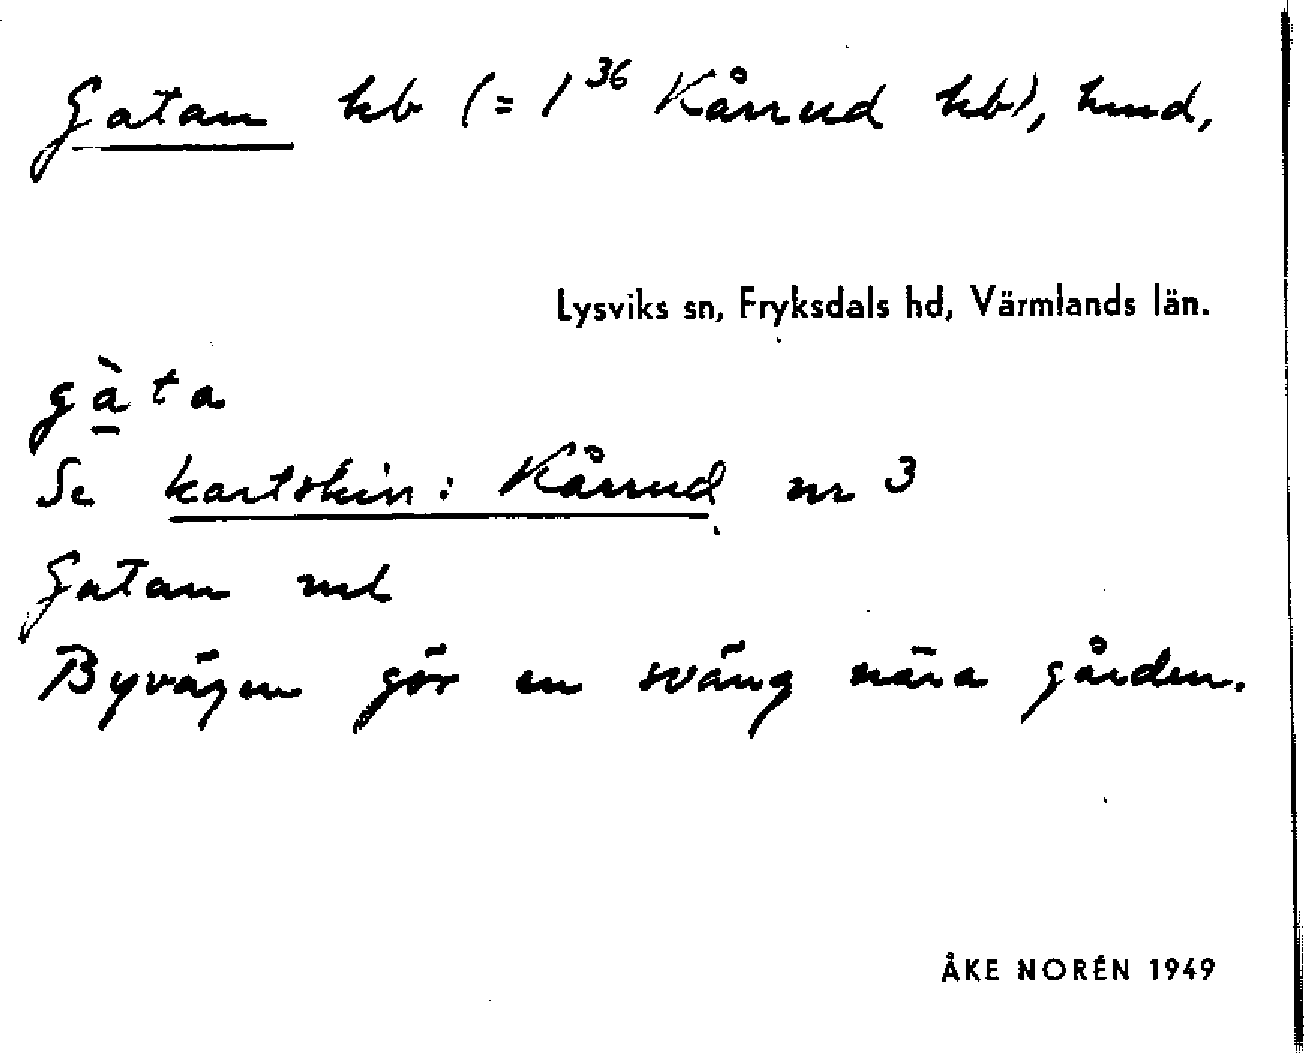 Gatan kb (= 1³⁶ Kårrud kb), hmd,
Lysviks sn, Fryksdals hd, Värmlands län.
gà̱ta
Se kartskiss: Kårrud nr 3
Gatan ml
Byvägen gör en sväng nära gården.
ÅKE NORÉN 1949